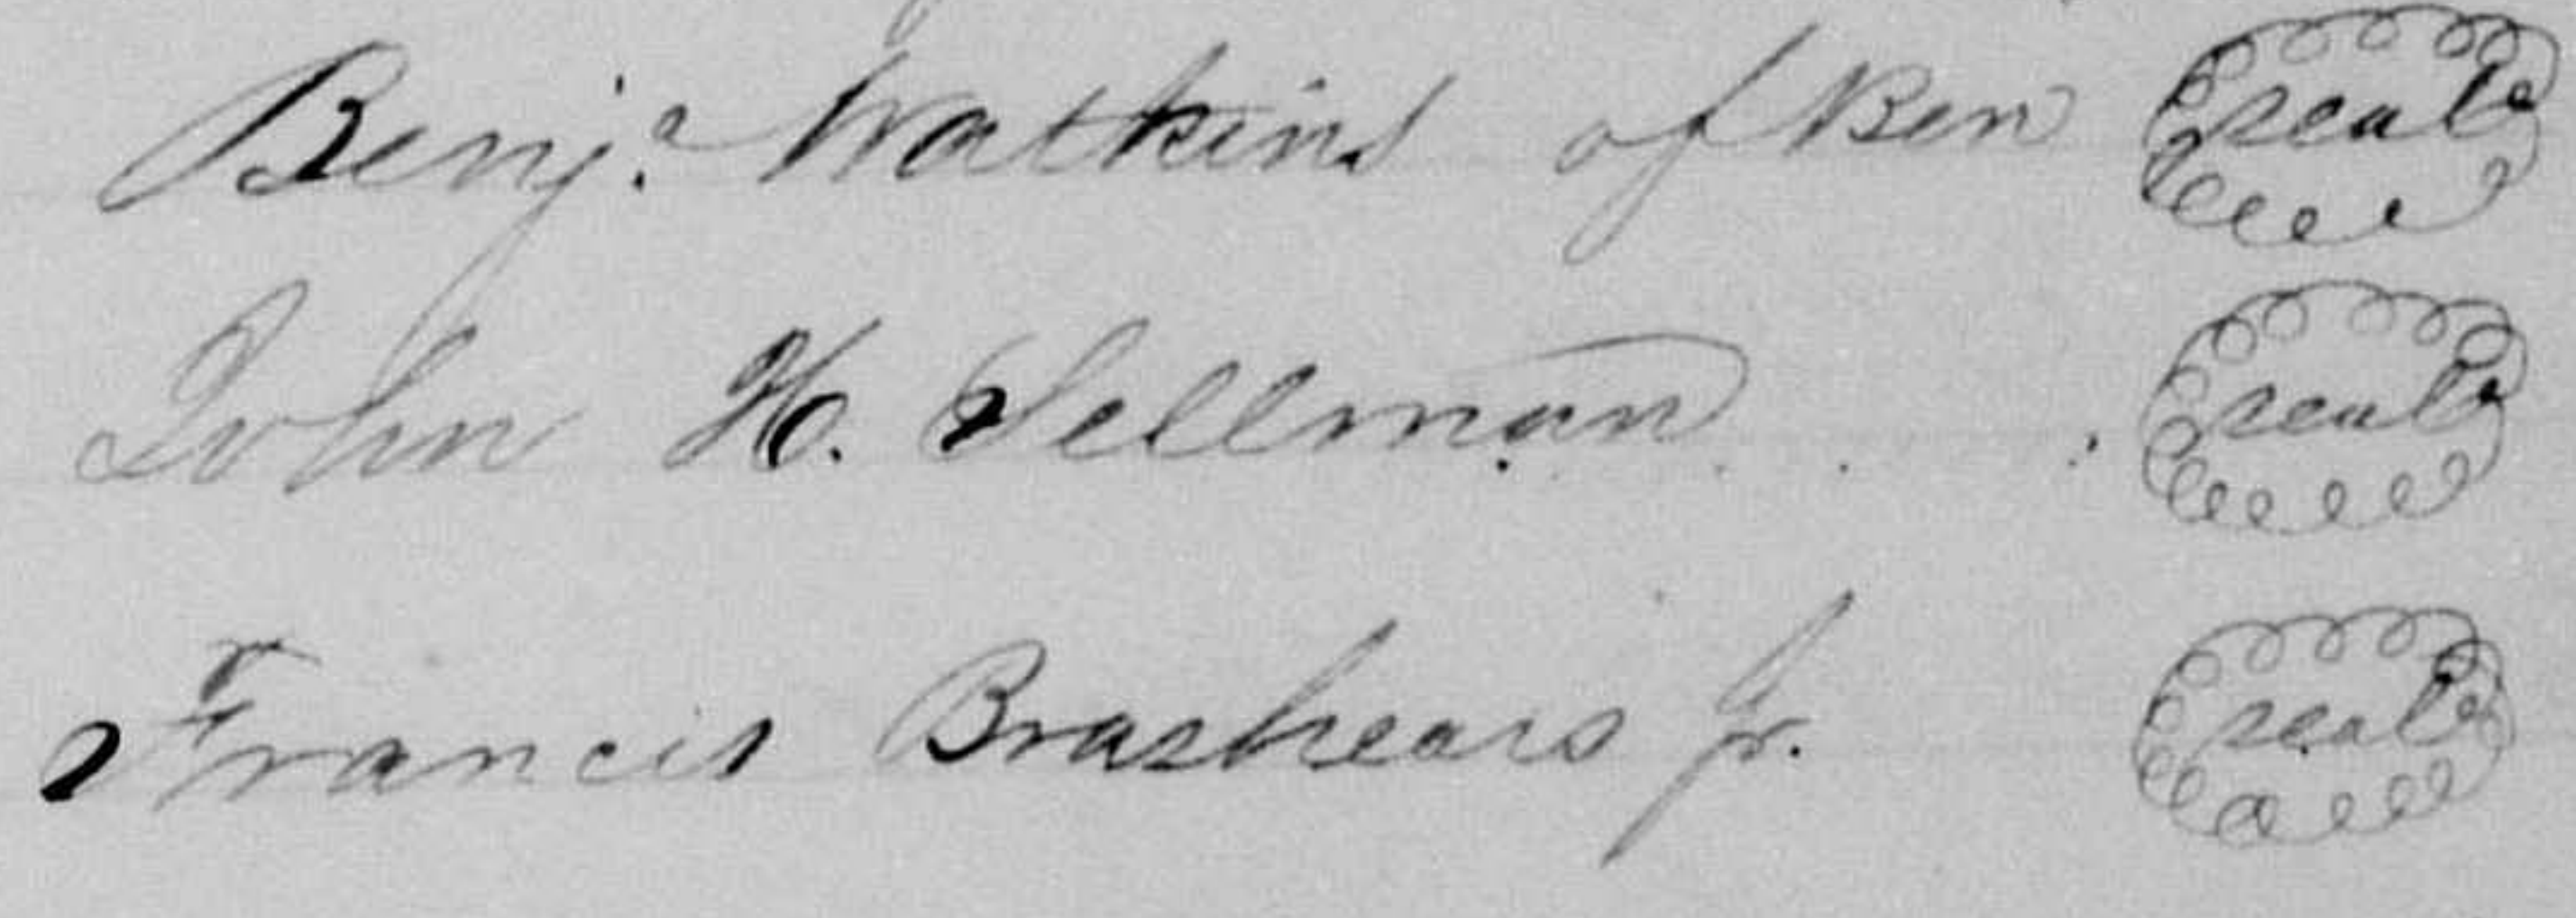 Benj.a Watkins of Ben seal
John H. Sellman seal
Francis Brashears Jr. seal